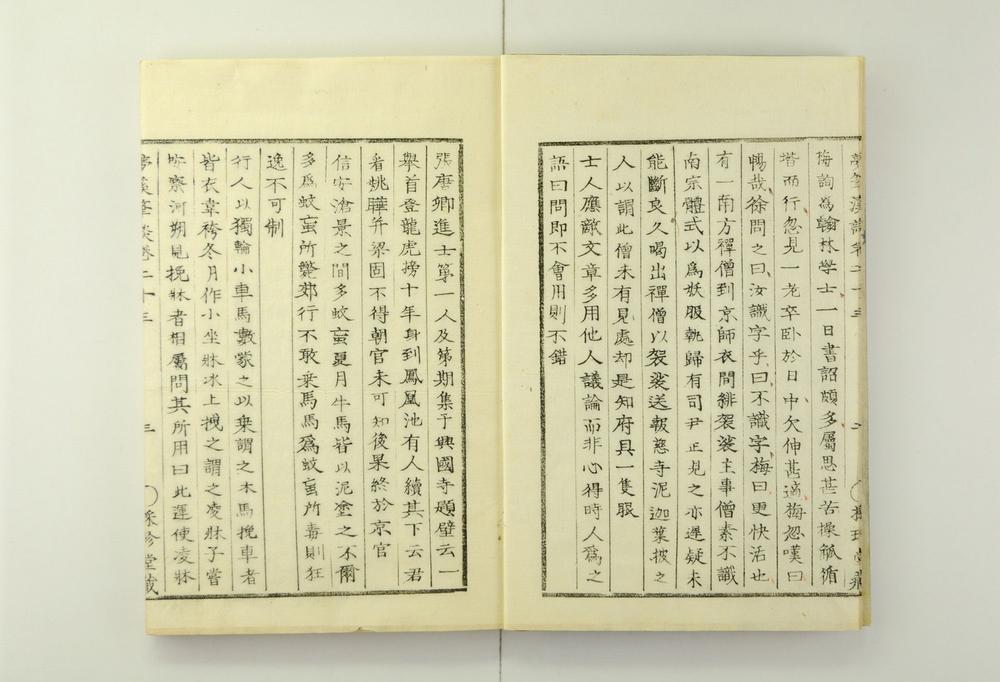 夢筆溪談卷二十三 二 ○ 採珍堂藏
梅詢為翰林學士一日書詔頗多屬思甚苦操觚循
堦而行忽見一老卒卧於日中欠伸甚適梅忽嘆曰
暢哉徐問之曰汝識字乎曰不識字梅曰更快活也
有一南方禪僧到京師衣間緋袈裟主事僧素不識
南宗體式以為妖服執歸有司尹正見之亦遲疑未
能斷良久喝出禪僧以袈裟送報慈寺泥迦葉披之
人以謂此僧未有見處却是知府具一隻眼
士人應敵文章多用他人議論而非心得時人為之
語曰問即不會用則不錯
張唐卿進士第一人及第期集于興國寺題壁云一
舉首登龍虎搒十年身到鳳凰池有人續其下云君
看姚曄并梁固不得朝官未可知後果終於京官
信安滄景之間多蚊䖟夏月牛馬皆以泥塗之不爾
多爲蚊䖟所斃郊行不敢乘馬馬爲蚊䖟所毒則狂
逸不可制
行人以獨輪小車馬數蒙之以乘謂之木馬挽車者
皆衣韋袴冬月作小坐牀冰上拽之謂之凌牀子嘗
按察河朔見挽牀者相屬問其所用曰此運使凌牀
夢溪筆談卷二十三 三 ○ 採珍堂藏